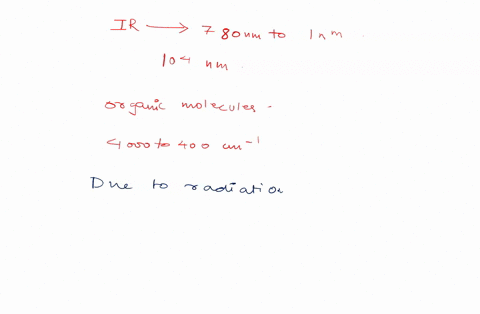 IR → 780nm to 1nm.
104 nm.
organic molecules.
4000 to 400 cm-1
Due to radiation